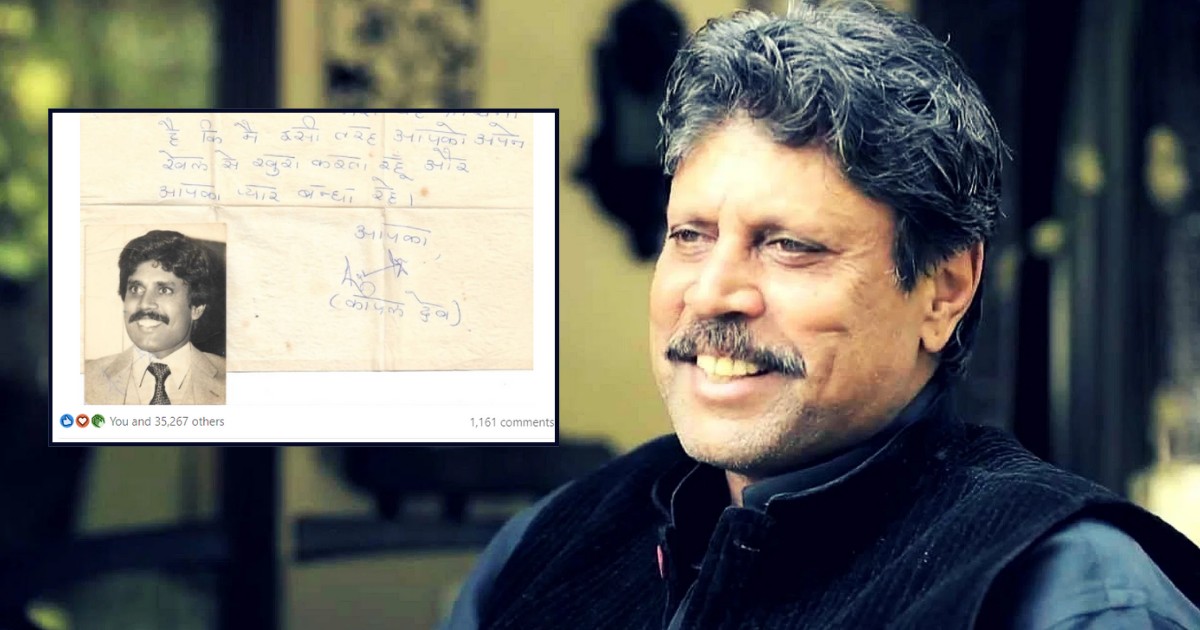 है कि मै इसी तरह आपको अपने
खेल से खुश करता रहूँ और
आपका प्यार बन्धा रहे।
आपका
(कपिल देव)
You and 35,267 others
1,161 comments